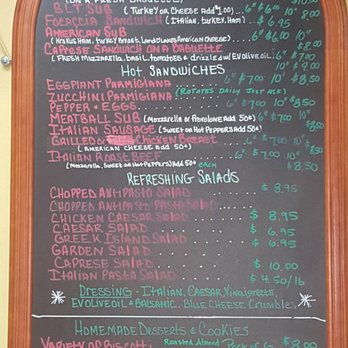 (ON A FRESH BAGUETTE)
B.L.T SUB (Turkey or Cheese Add $1.00) 6" $7.00 9"
FOCACCIA SANDWICH (Italian, Turkey, Ham) $6.95
AMERICAN SUB 6" $7.00 10"
CAPRESE SANDWICH ON A BAGUETTE
(FRESH Mozzarella, basil, tomatoes + drizzled w/ EVOlive oil)
HOT SANDWICHES
EGGPLANT PARMIGIANA 6" $7.00 10" $8.50
ZUCCHINI PARMIGIANA (ROTATES DAILY JUST ASK)
PEPPER + EGGS 6" $7.00 10" $8.50
MEATBALL SUB (Mozzarella or Provolone Add 50¢)
ITALIAN SAUSAGE (SWEET or HOT PEPPERS Add 50¢)
GRILLED OR CHICKEN BREAST 6" $7.00 10"
(AMERICAN CHEESE ADD 50¢)
ITALIAN ROAST BEEF 6" $7.00 10"
(Mozzarella, Sweet or Hot Peppers) Add 50¢ EACH $8.50
REFRESHING SALADS
CHOPPED ANTIPASTO SALAD $8.95
CHOPPED ANTIPASTO SALAD
CHICKEN CAESAR SALAD $8.95
CAESAR SALAD $6.95
GREEK ISLAND SALAD $6.95
GARDEN SALAD
CAPRESE SALAD $10.00
ITALIAN PASTA SALAD $4.50/lb
DRESSING - ITALIAN, CAESAR, Vinaigrette,
EVOLIVEOIL & BALSAMIC, BLUE CHEESE Crumbles
HOMEMADE DESSERTS & COOKIES
VARIETY OF BISCOTTI Roasted Almond $8.00